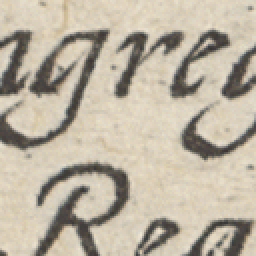 agreg
Reg